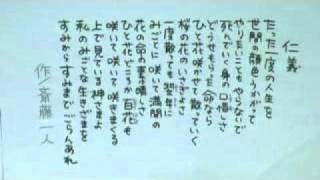 仁義
たった一度の人生を
世間の顔色うかがって
やりたいことも やらないで
死んでいく身の口惜しさ
どうせもらった命なら
ひと花咲かせて散っていく
桜の花のいさぎよさ
一度散っても 翌年に
みごとに咲いて 満開の
花の命の素晴しさ
ひと花どころか 百花も
咲いて咲いて 咲きまくる
上で見ている 神さまよ
私のみごとな 生きざまを
すみからすみまで ごらんあれ
作/斎藤一人